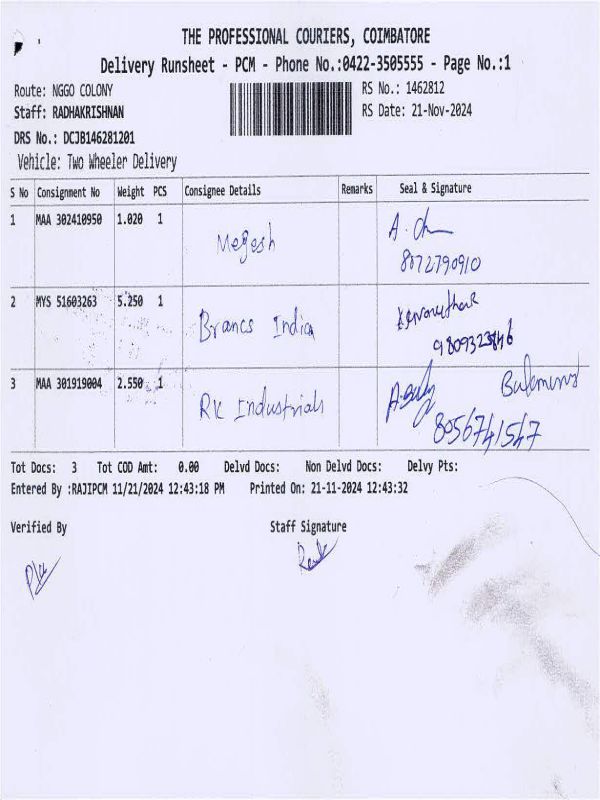 THE PROFESSIONAL COURIERS, COIMBATORE
Delivery Runsheet - PCM - Phone No.:0422-3505555 - Page No.:1
Route: NGGO COLONY RS No.: 1462812
Staff: RADHAKRISHNAN RS Date: 21-Nov-2024
DRS No.: DCJB146281201
Vehicle: Two Wheeler Delivery
S No Consignment No Weight PCS Consignee Details Remarks Seal & Signature
1 MAA 302410950 1.020 1
Megesh
8072790910
2 MYS 51603263 5.250 1
Brancs India
3 MAA 301919004 2.550 1
RK Industrials
8056741547
Tot Docs: 3 Tot COD Amt: 0.00 Delvd Docs: Non Delvd Docs: Delvy Pts:
Entered By :RAJIPCM 11/21/2024 12:43:18 PM Printed On: 21-11-2024 12:43:32
Verified By Staff Signature